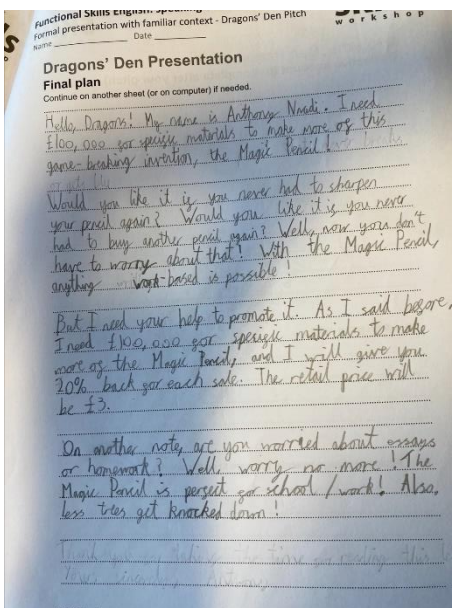 Functional Skills English: Speaking
Formal presentation with familiar context - Dragons' Den Pitch
workshop
Name Date
Dragons' Den Presentation
Final plan
Continue on another sheet (or on computer) if needed.
Hello, Dragons! My name is Anthony Nnadi. I need
£100,000 for spesific materials to make more of this
game-breaking invention, the Magic Pencil
Would you like it if you never had to sharpen
your pencil again? Would you like it if you never
had to buy another pencil again? Well, now you don't
have to worry about that! With the Magic Pencil,
anything work-based is possible!
But I need your help to promote it. As I said before,
I need £100,000 for spesific materials to make
more of the Magic Pencil, and I will give you
20% back for each sale. The retail price will
be £3.
On another note, are you worried about essays
or homework? Well worry no more! The
Magic Pencil is perfect for school/work! Also,
less trees get knocked down!
the time for reading this